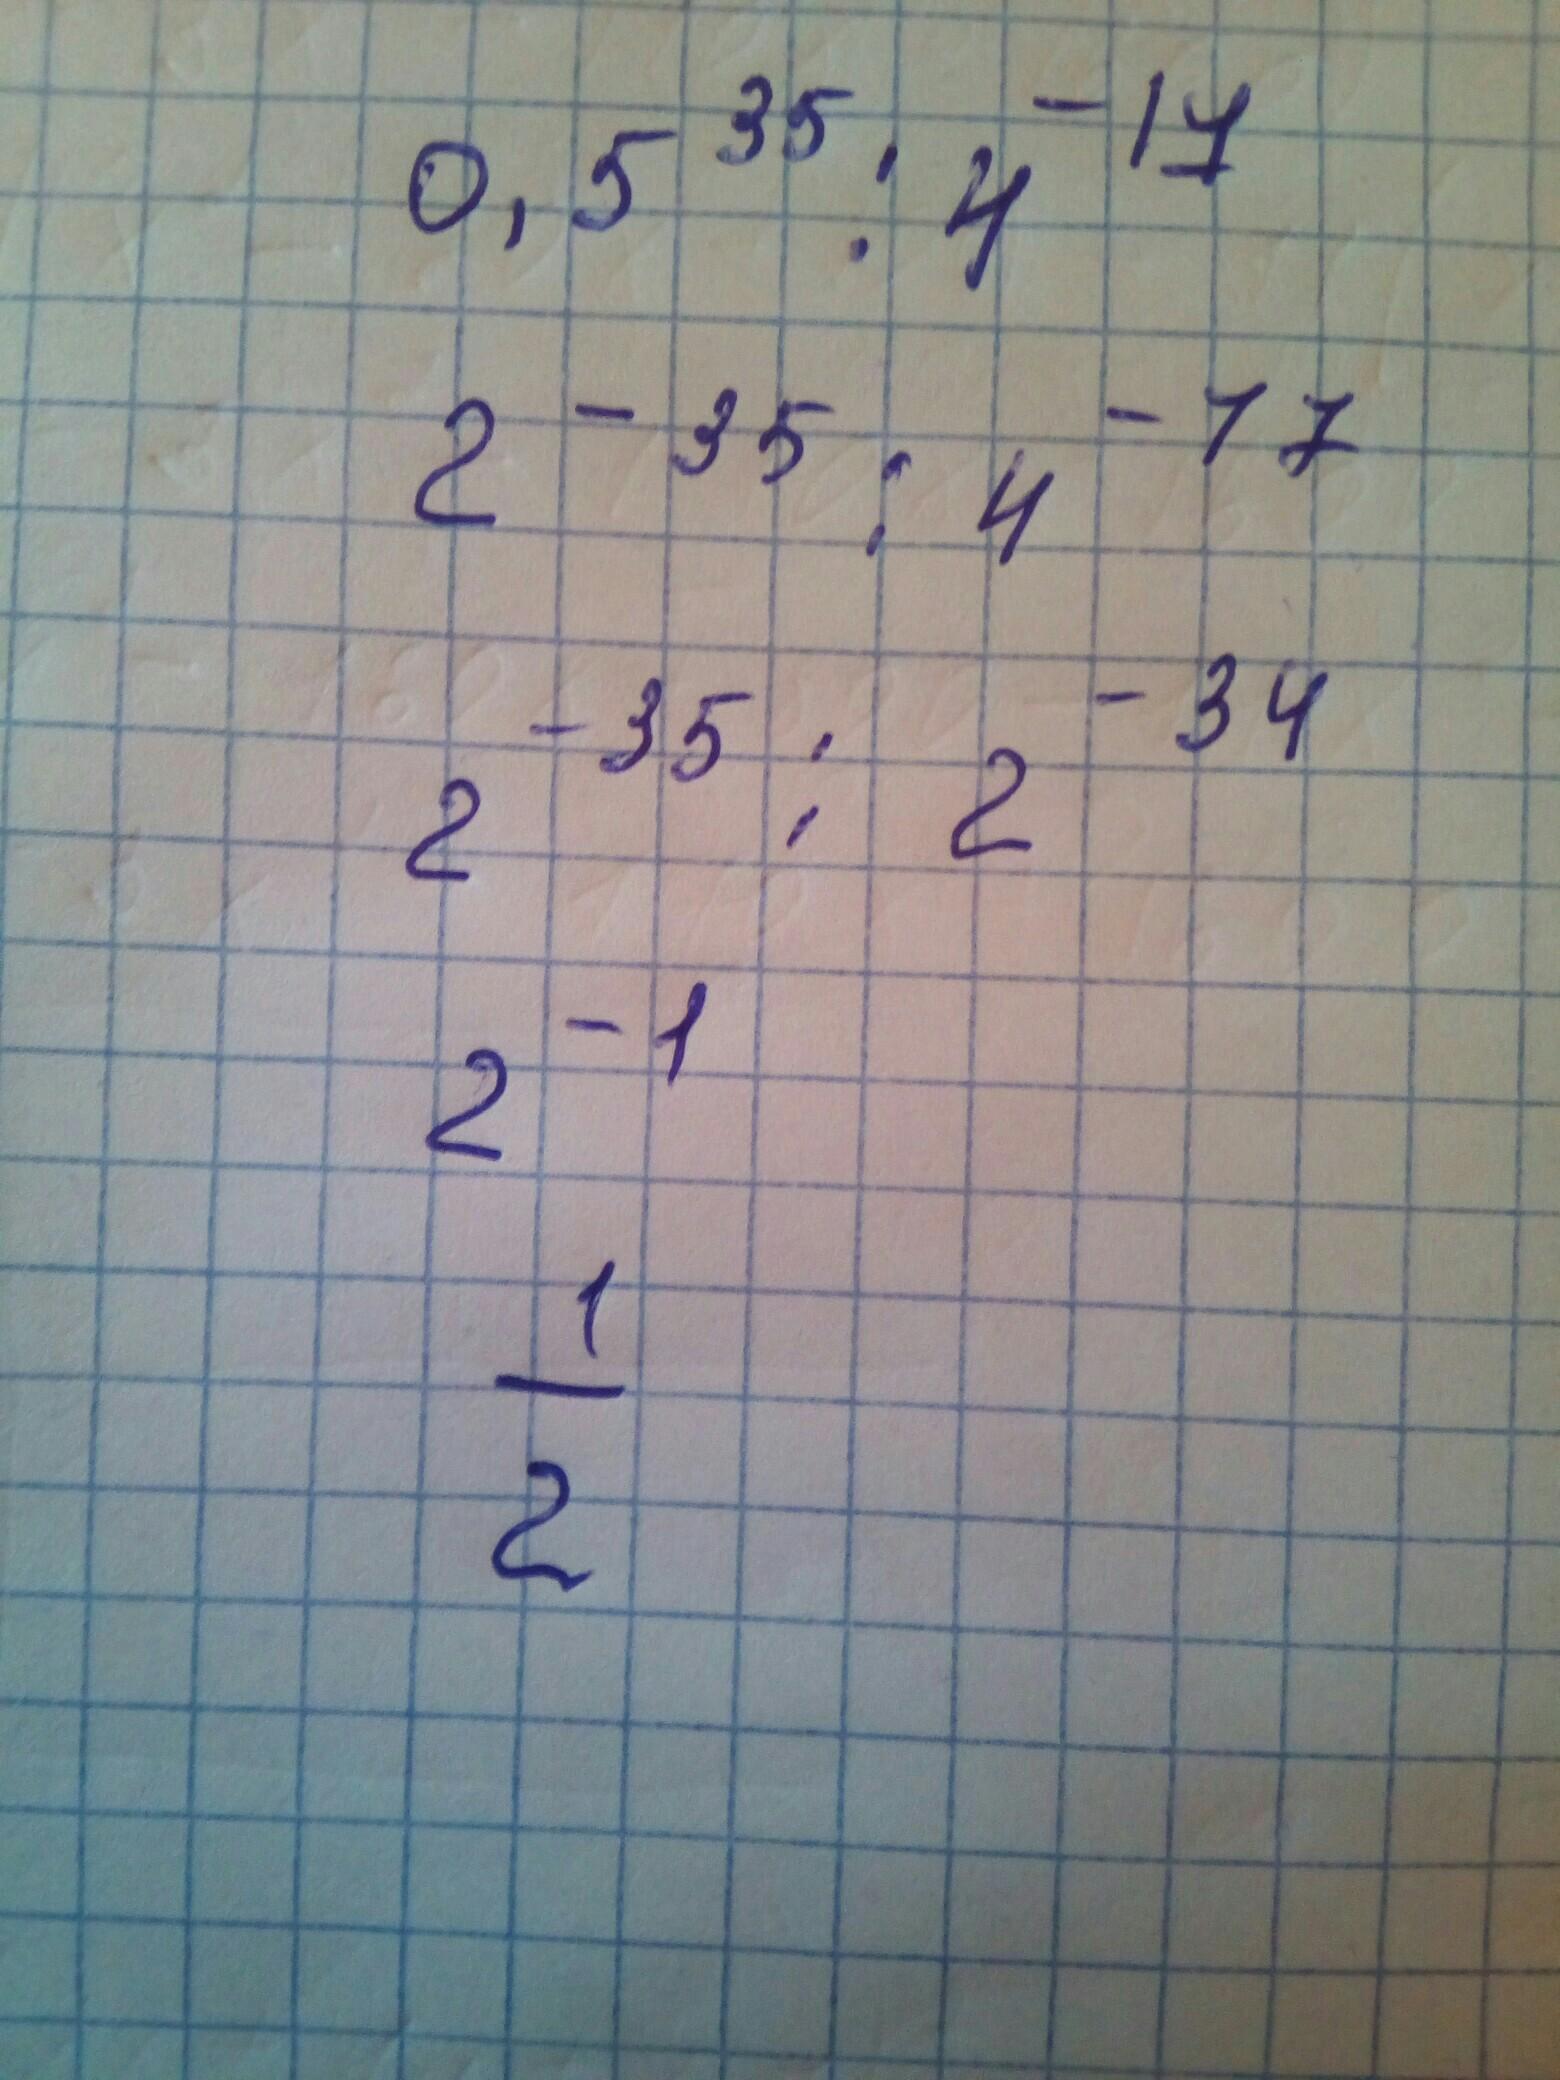 0,5^35 : 4^-17
2^-35 : 4^-17
2^-35 : 2^-34
2^-1
1
2